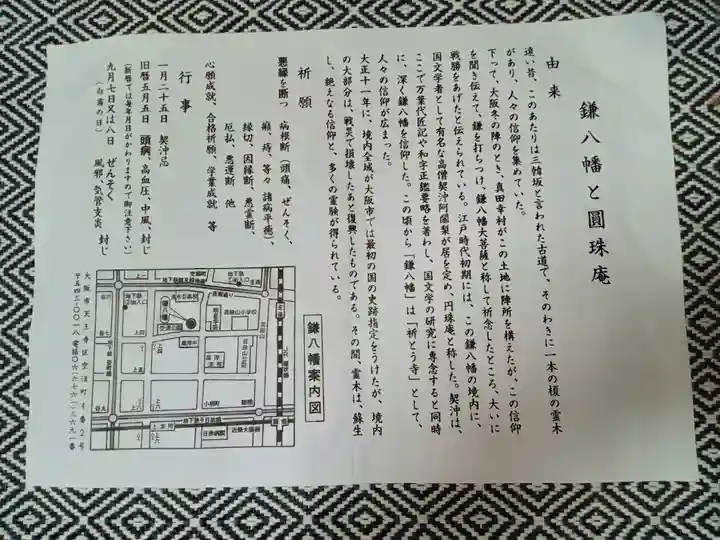 鎌八幡と圓珠庵
由来
遠い昔、このあたりは三韓坂と言われた古道で、そのわきに一本の榎の霊木
があり、人々の信仰を集めていた。
下って、大阪冬の陣のとき、真田幸村がこの土地に陣所を構えたが、この信仰
を聞き伝えて、鎌を打ちつけ、鎌八幡大菩薩と称して祈念したところ、大いに
戦勝をあげたと伝えられている。江戸時代初期には、この鎌八幡の境内に、
国文学者として有名な高僧契沖阿闍梨が居を定め、円珠庵と称した。契沖は、
ここで万葉代匠記や和字正鑑要略を著わし、国文学の研究に専念すると同時
に、深く鎌八幡を信仰した。この頃から「鎌八幡」は「祈とう寺」として、
人々の信仰が広まった。
大正十一年に、境内全域が大阪市では最初の国の史跡指定をうけたが、境内
の大部分は、戦災で損壊したあと復興したものである。その間、霊木は、蘇生
し、絶えなる信仰と、多くの霊験が得られている。
祈願
悪縁を断つ 病根断（頭痛、ぜんそく、
癪、痔、等々 諸病平癒）、
縁切、因縁断、悪霊断、
厄払、悪運断 他
心願成就、合格祈願、学業成就 等
行事
一月二十五日 契沖忌
旧暦五月五日 頭病、高血圧、中風、封じ
（新暦では毎年月日がかわりますので御注意下さい）
九月七日又は八日 ぜんそく
（白露の日） 風邪、気管支炎 封じ
鎌八幡案内図
空堀町
清水谷高校
鎌八幡
真田山小学校
小橋町
上本町
日赤病院
近鉄大阪線
大阪市天王寺区空清町四番2号
〒五四三-〇〇一八 電話〇六-六七六一-三六九一番